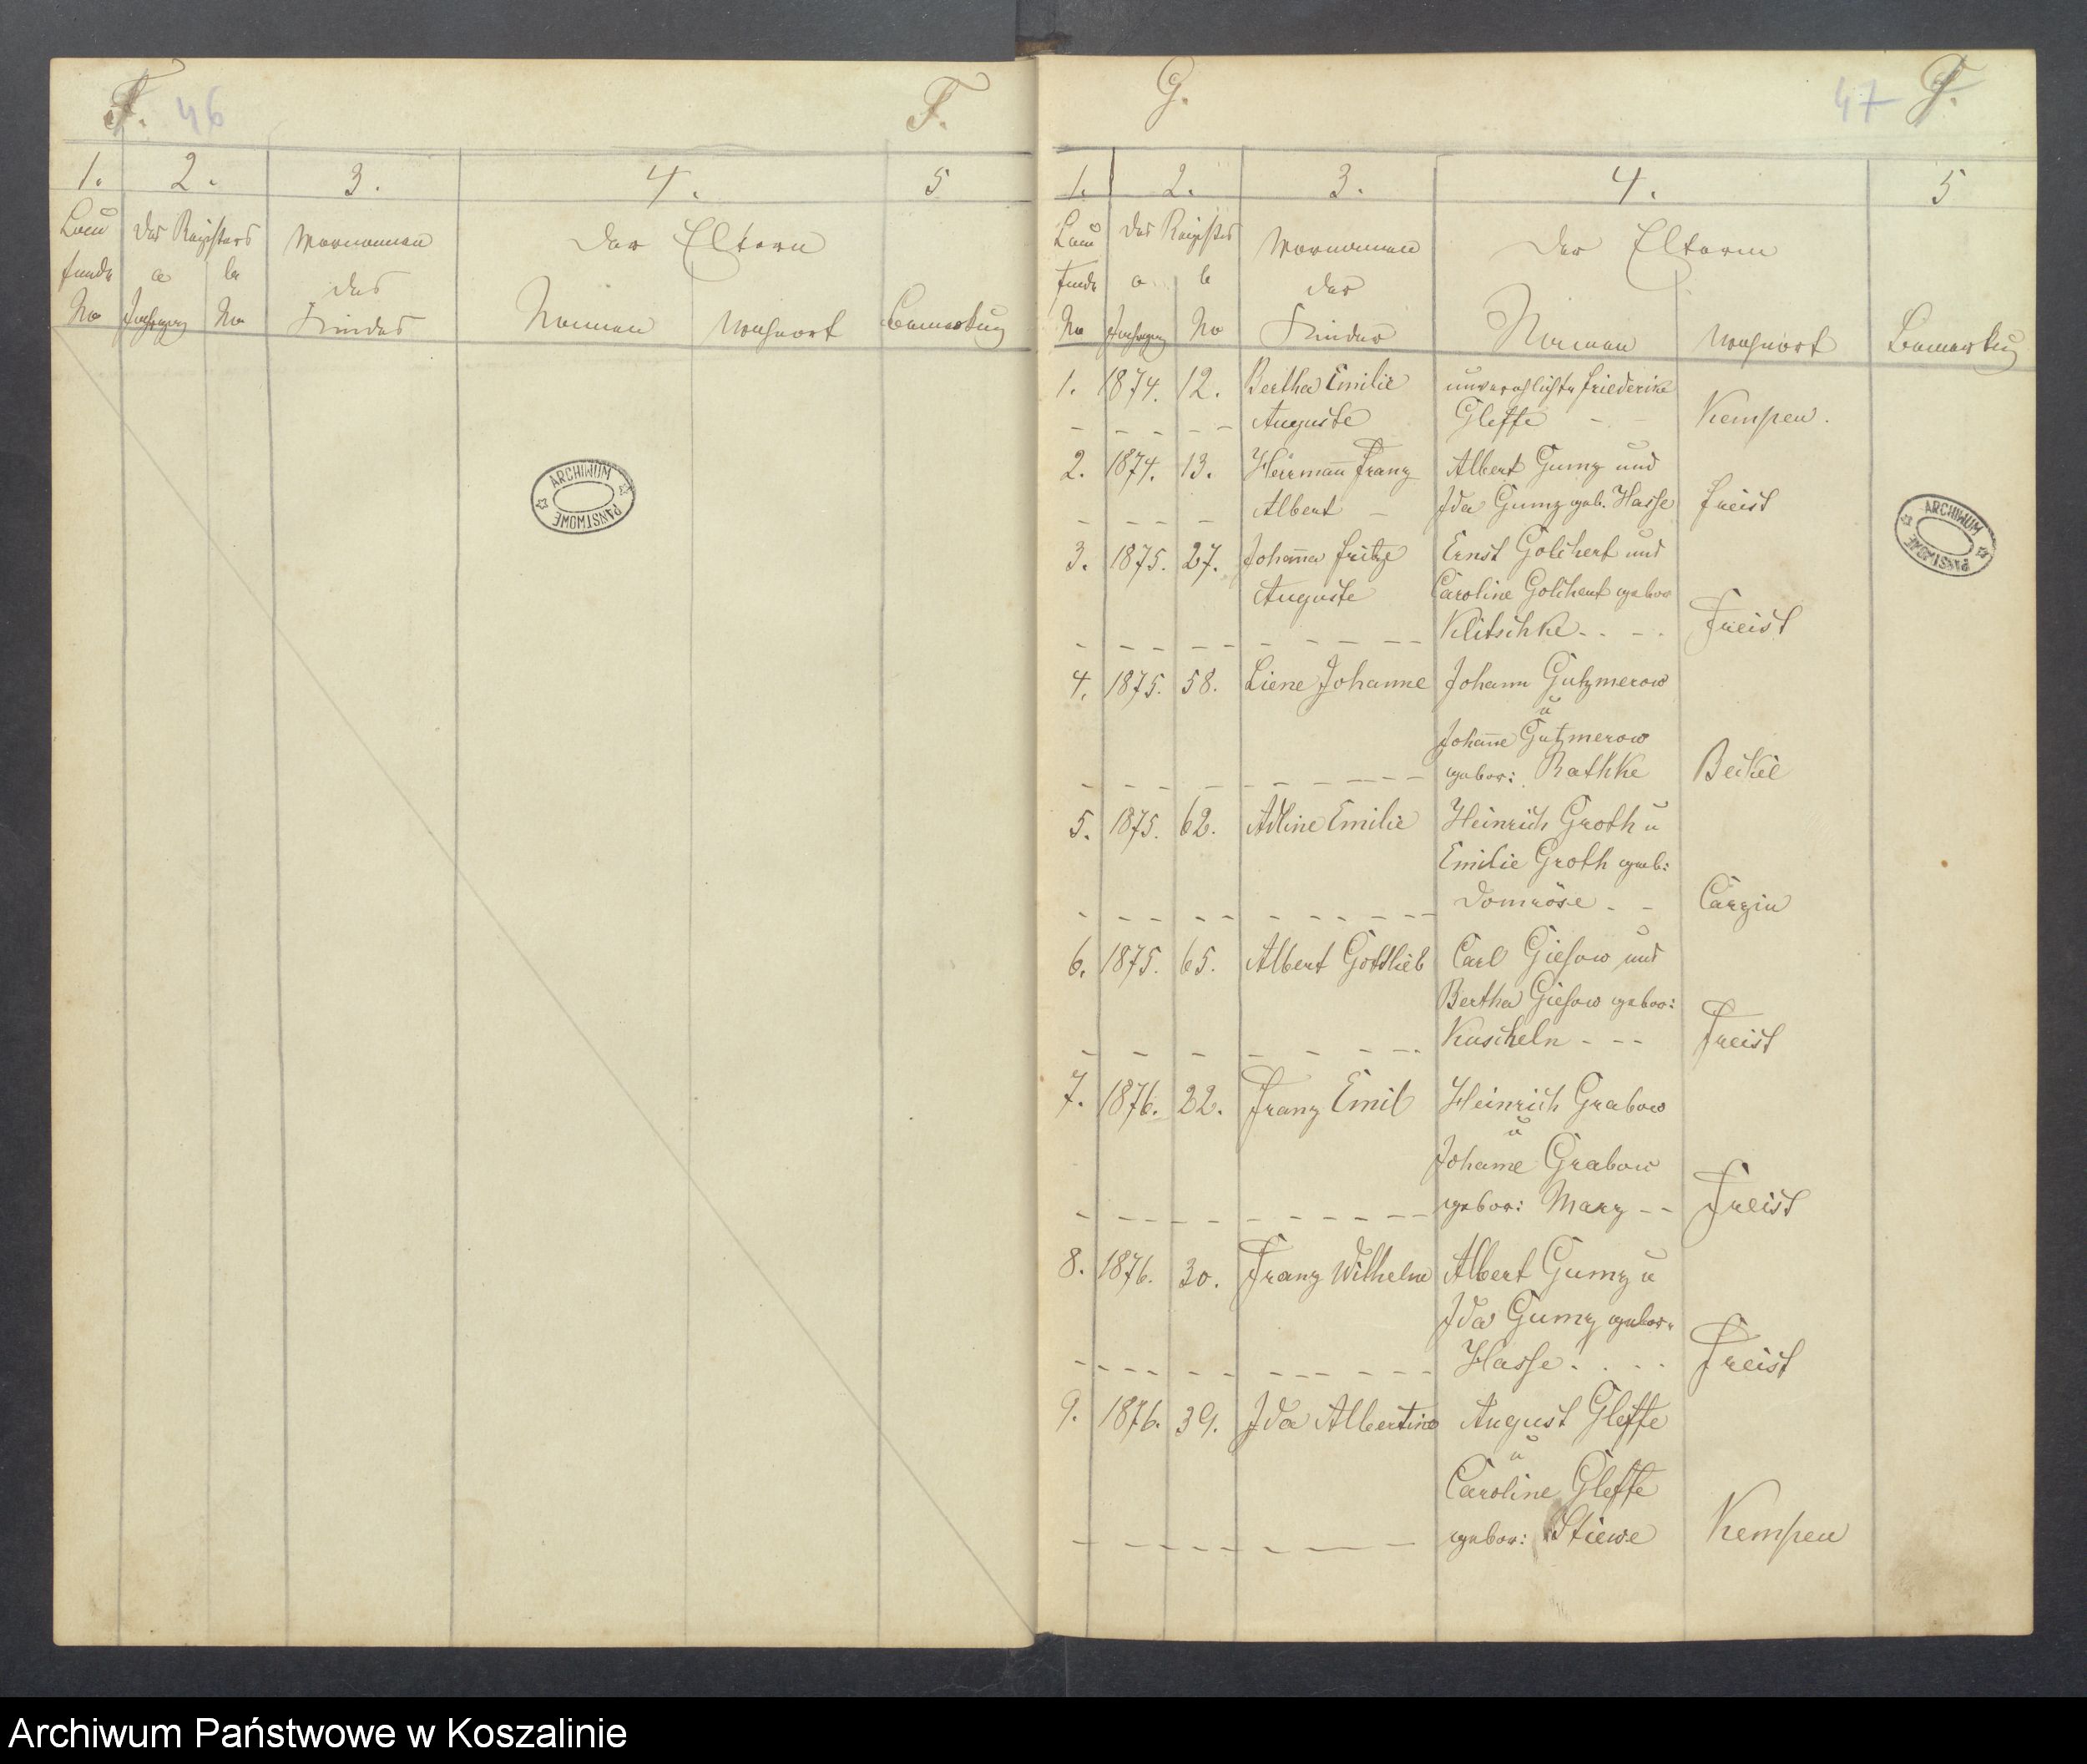 F. 46 F.
1. 2. 3. 4. 5
Lau des Registers Vornamen der Eltern
fende a b des
No Jahrgang No Kindes Namen Wohnort Bemerkung
ARCHIWUM
PAŃSTWOWE
G. 47 G.
1. 2. 3. 4. 5
Lau des Registers Vornamen der Eltern
fende a b des
No Jahrgang No Kindes Namen Wohnort Bemerkung
1. 1874. 12. Bertha Emilie unverehlichte Friederike
Auguste Gleffe Kempen.
2. 1874. 13. Herrman̅ Franz Albert Gumz und
Albert Ida Gumz geb. Hasse Freist
3. 1875. 27. Johan̅a Fritze Ernst Golchert und
Auguste Caroline Golchert gebor
Klitschke Freist
4. 1875. 58. Liene Johanne Johann Gutzmerow
u
Johan̅e Gutzmerow
gebor: Rathke Beckel
5. 1875. 62. Adline Emilie Heinrich Groth u
Emilie Groth geb:
Domröse Carzin
6. 1875. 65. Albert Gottlieb Carl Giesow und
Bertha Giesow gebor:
Kuscheln Freist
7. 1876. 22. Franz Emil Heinrich Grabow
u
Johanne Grabow
gebor: Marz Freist
8. 1876. 30. Franz Wilhelm Albert Gumz u
Ida Gumz gebor.
Hasse Freist
9. 1876. 39. Ida Albertine August Gleffe
u
Caroline Gleffe
gebor: Stiewe Kempen
ARCHIWUM
PAŃSTWOWE
Archiwum Państwowe w Koszalinie